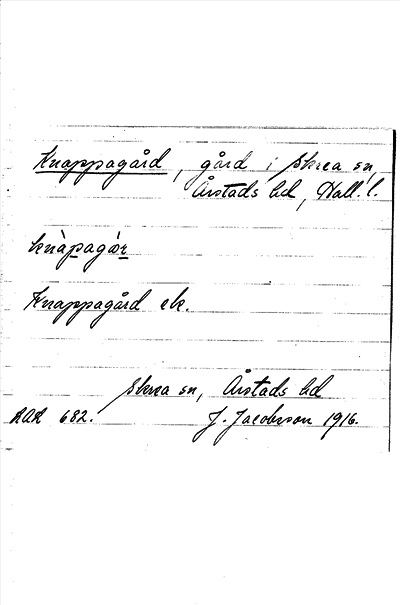 Knappagård, gård i Skrea sn,
Årstads hd, Hall. l.
knàpagár
Knappagård ek.
Skrea sn, Årstads hd
682. J. Jacobsson 1916.